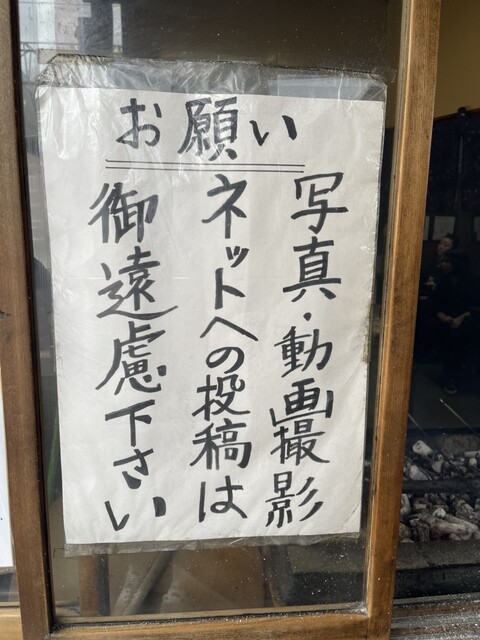 お願い
写真・動画撮影
ネットへの投稿は
御遠慮下さい